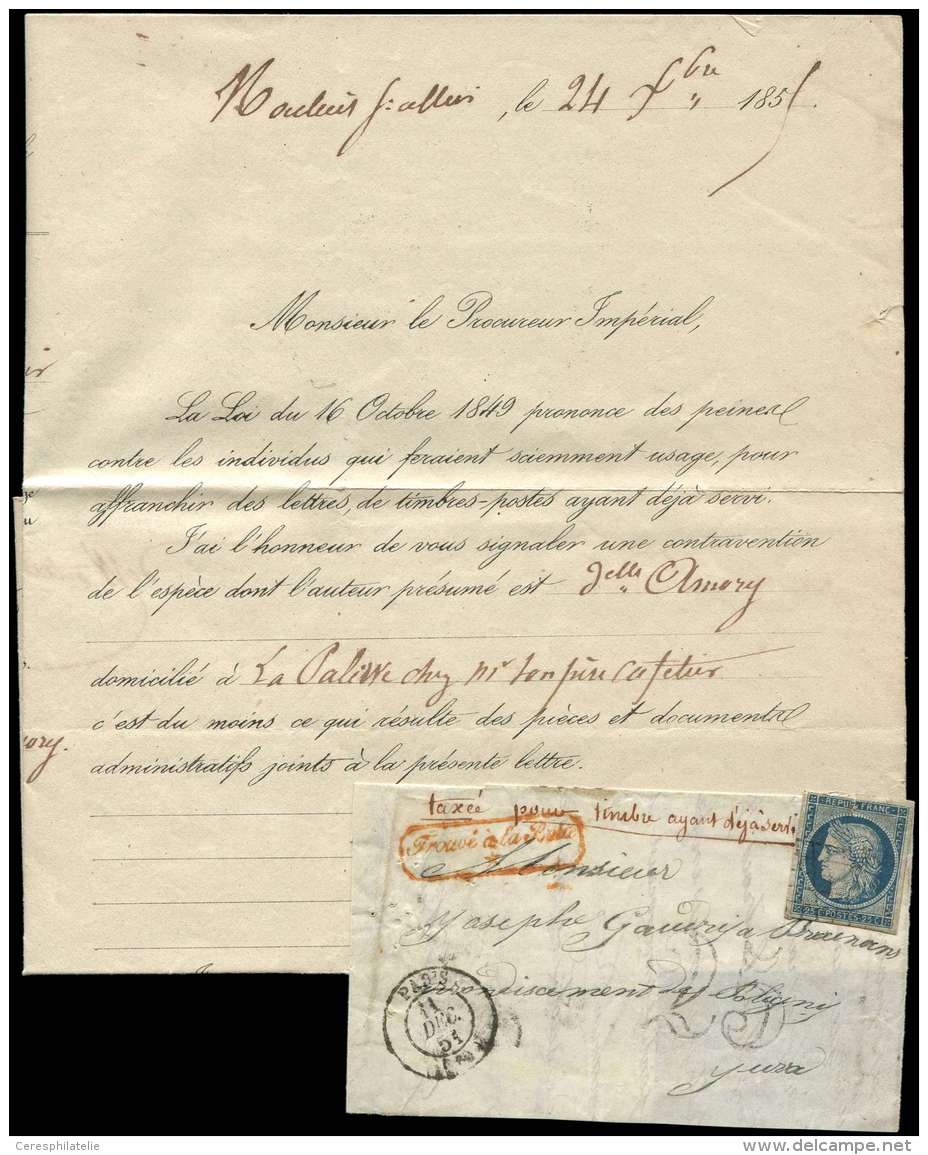 Moulins s/ allier, le 24 Xbre 1855.
Monsieur le Procureur Impérial,
La Loi du 16 Octobre 1849 prononce des peines
contre les individus qui feraient sciemment usage, pour
affranchir des lettres, de timbres-postes ayant déjà servi.
J'ai l'honneur de vous signaler une contravention
de l'espèce dont l'auteur présumé est Delle Amory
domicilié à La Palisse chez Mr son père cafetier
c'est du moins ce qui résulte des pièces et documents
administratifs joints à la présente lettre.
taxée pour timbre ayant déjà servi
REPUB. FRANC.
Trouvé à la Boite
Monsieur
25 C POSTES 25 C
Joseph a
arrondiscement de Poligni
Jura
PARIS
11
DEC.
51
25
Ceresphilatelie
© www.delcampe.net